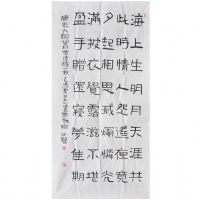 海上生明月天涯共
此時情人怨遙夜竟
夕起相思滅燭憐光
滿披衣覺露滋不堪
盈手贈還寢夢佳期
唐張九齡望月懷遠詩